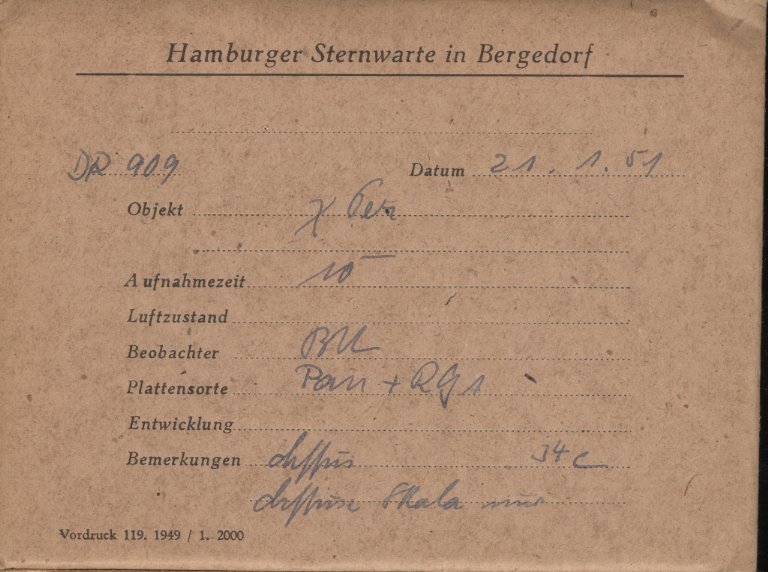 Hamburger Sternwarte in Bergedorf
DR 909 Datum 21. 1. 51
Objekt χ Per
Aufnahmezeit 10
Luftzustand
Beobachter
Plattensorte Pan + RG1
Entwicklung
Bemerkungen diffus 34c
diffuse Skala
Vordruck 119. 1949 / 1. 2000